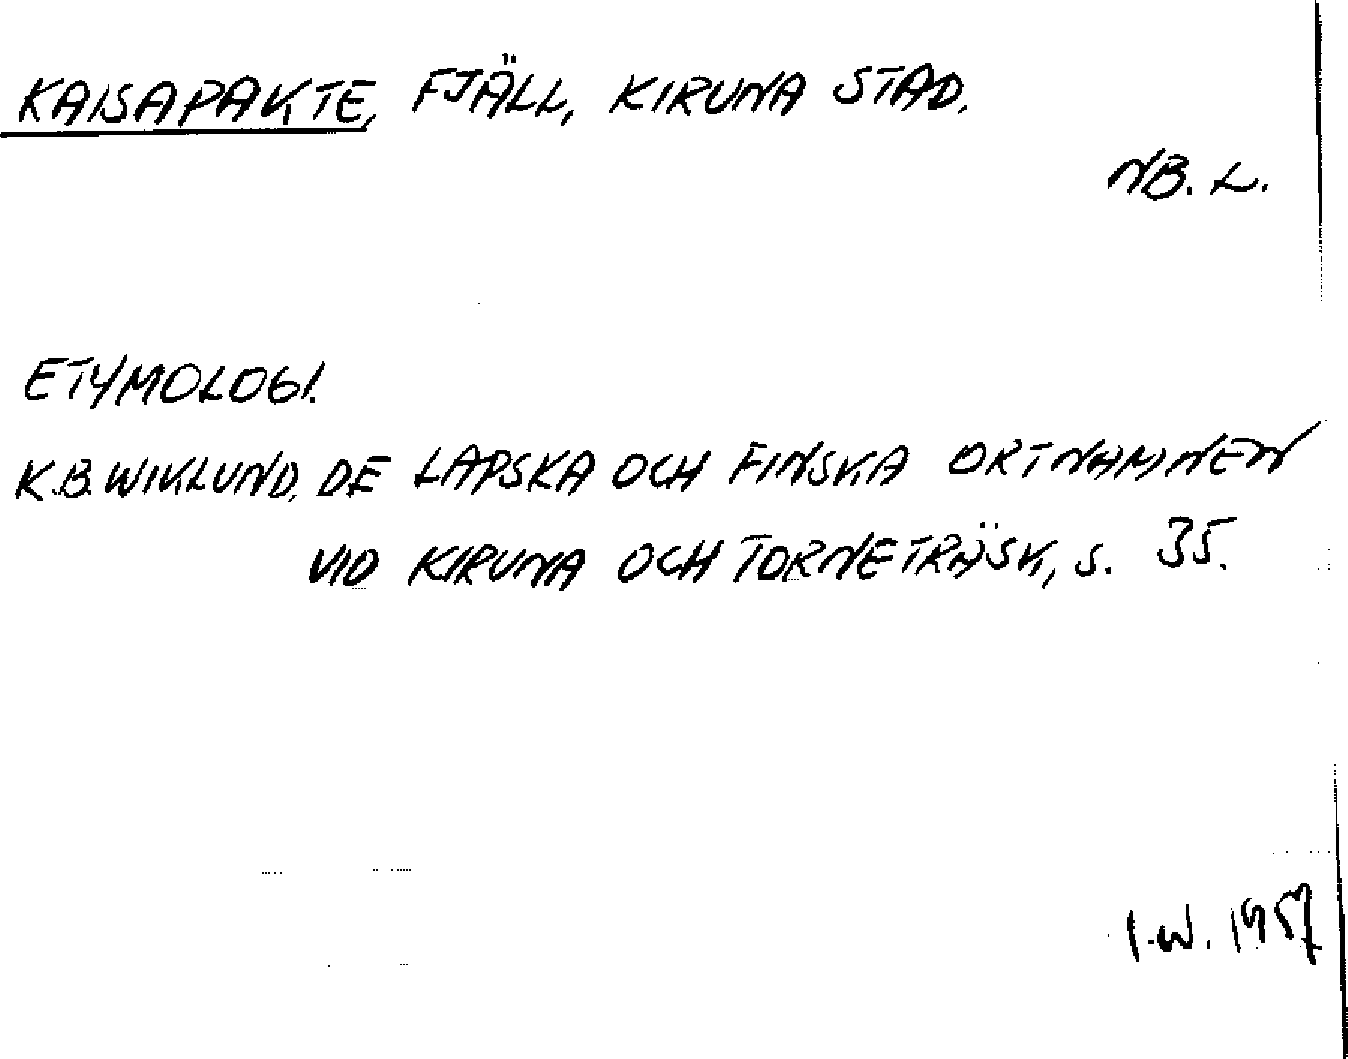 KAISAPAKTE, FJÄLL, KIRUNA STAD.
NB. L.
ETYMOLOGI.
K.B. WIKLUND, DE LAPSKA OCH FINSKA ORTNAMNEN
VID KIRUNA OCH TORNETRÄSK, S. 35.
I.W. 1957